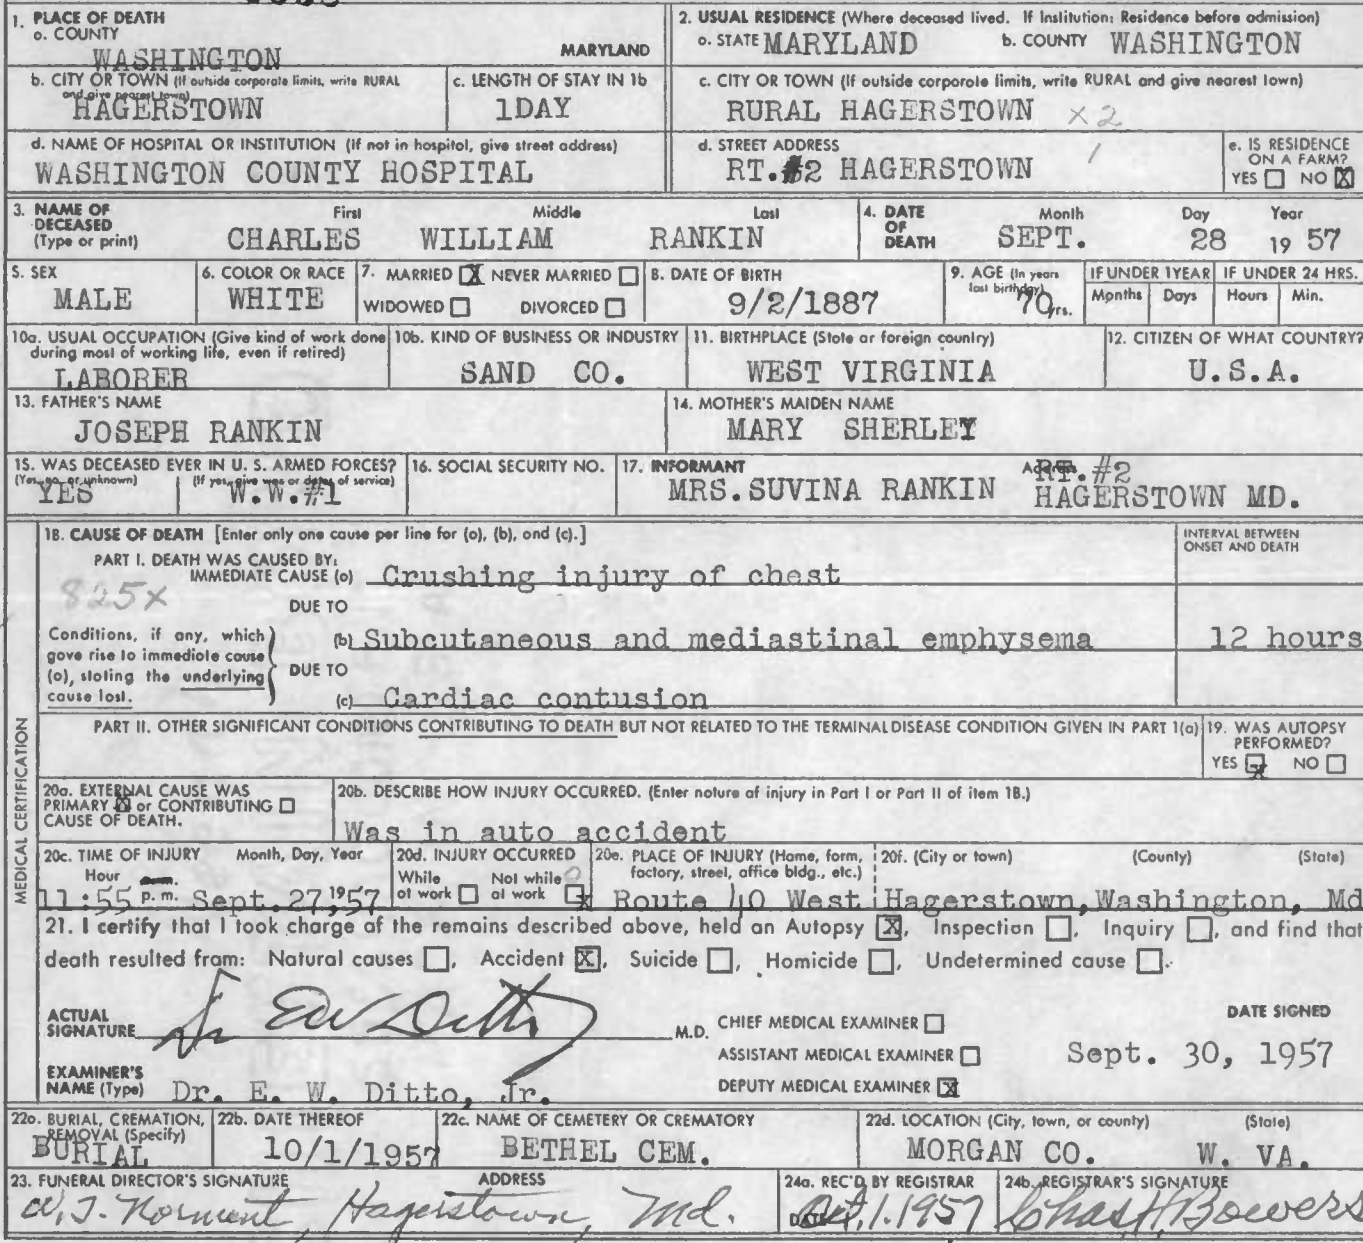 1. PLACE OF DEATH
a. COUNTY
WASHINGTON MARYLAND
2. USUAL RESIDENCE (Where deceased lived. If Institution: Residence before admission)
a. STATE MARYLAND b. COUNTY WASHINGTON
b. CITY OR TOWN (If outside corporate limits, write RURAL and give nearest town)
HAGERSTOWN
c. LENGTH OF STAY IN 1b
1DAY
c. CITY OR TOWN (If outside corporate limits, write RURAL and give nearest town)
RURAL HAGERSTOWN x2
d. NAME OF HOSPITAL OR INSTITUTION (If not in hospital, give street address)
WASHINGTON COUNTY HOSPITAL
d. STREET ADDRESS
RT.#2 HAGERSTOWN
e. IS RESIDENCE ON A FARM?
YES ☐ NO ☒
3. NAME OF DECEASED (Type or print)
First Middle Last
CHARLES WILLIAM RANKIN
4. DATE OF DEATH
Month Day Year
SEPT. 28 19 57
5. SEX
MALE
6. COLOR OR RACE
WHITE
7. MARRIED ☒ NEVER MARRIED ☐
WIDOWED ☐ DIVORCED ☐
8. DATE OF BIRTH
9/2/1887
9. AGE (In years last birthday)
70 yrs.
IF UNDER 1 YEAR
Months Days
IF UNDER 24 HRS.
Hours Min.
10a. USUAL OCCUPATION (Give kind of work done during most of working life, even if retired)
LABORER
10b. KIND OF BUSINESS OR INDUSTRY
SAND CO.
11. BIRTHPLACE (State or foreign country)
WEST VIRGINIA
12. CITIZEN OF WHAT COUNTRY?
U.S.A.
13. FATHER'S NAME
JOSEPH RANKIN
14. MOTHER'S MAIDEN NAME
MARY SHERLEY
15. WAS DECEASED EVER IN U. S. ARMED FORCES?
(Yes, no, or unknown) (If yes, give war or dates of service)
YES W.W.#1
16. SOCIAL SECURITY NO.
17. INFORMANT Address
MRS.SUVINA RANKIN RT.#2
HAGERSTOWN MD.
MEDICAL CERTIFICATION
18. CAUSE OF DEATH [Enter only one cause per line for (a), (b), and (c).]
INTERVAL BETWEEN ONSET AND DEATH
PART I. DEATH WAS CAUSED BY:
IMMEDIATE CAUSE (a) Crushing injury of chest
825x
DUE TO
Conditions, if any, which gave rise to immediate cause (a), stating the underlying cause last.
(b) Subcutaneous and mediastinal emphysema 12 hours
DUE TO
(c) Cardiac contusion
PART II. OTHER SIGNIFICANT CONDITIONS CONTRIBUTING TO DEATH BUT NOT RELATED TO THE TERMINAL DISEASE CONDITION GIVEN IN PART I(a)
19. WAS AUTOPSY PERFORMED?
YES ☒ NO ☐
20a. EXTERNAL CAUSE WAS PRIMARY ☒ or CONTRIBUTING ☐ CAUSE OF DEATH.
20b. DESCRIBE HOW INJURY OCCURRED. (Enter nature of injury in Part I or Part II of item 18.)
Was in auto accident
20c. TIME OF INJURY Month, Day, Year
Hour a.m.
11:55 p. m. Sept.27,1957
20d. INJURY OCCURRED
While at work ☐ Not while at work ☒
20e. PLACE OF INJURY (Home, form, factory, street, office bldg., etc.)
Route 40 West
20f. (City or town) (County) (State)
Hagerstown,Washington, Md
21. I certify that I took charge of the remains described above, held an Autopsy ☒, Inspection ☐, Inquiry ☐, and find that
death resulted from: Natural causes ☐, Accident ☒, Suicide ☐, Homicide ☐, Undetermined cause ☐.
ACTUAL SIGNATURE Dr EW Ditto M.D.
CHIEF MEDICAL EXAMINER ☐
ASSISTANT MEDICAL EXAMINER ☐
DEPUTY MEDICAL EXAMINER ☒
DATE SIGNED
Sept. 30, 1957
EXAMINER'S NAME (Type) Dr. E. W. Ditto, Jr.
22a. BURIAL, CREMATION, REMOVAL (Specify)
BURIAL
22b. DATE THEREOF
10/1/1957
22c. NAME OF CEMETERY OR CREMATORY
BETHEL CEM.
22d. LOCATION (City, town, or county) (State)
MORGAN CO. W. VA.
23. FUNERAL DIRECTOR'S SIGNATURE ADDRESS
W.J. Norment, Hagerstown, Md.
24a. REC'D BY REGISTRAR
DATE Oct.1.1957
24b. REGISTRAR'S SIGNATURE
Chas H Bowers